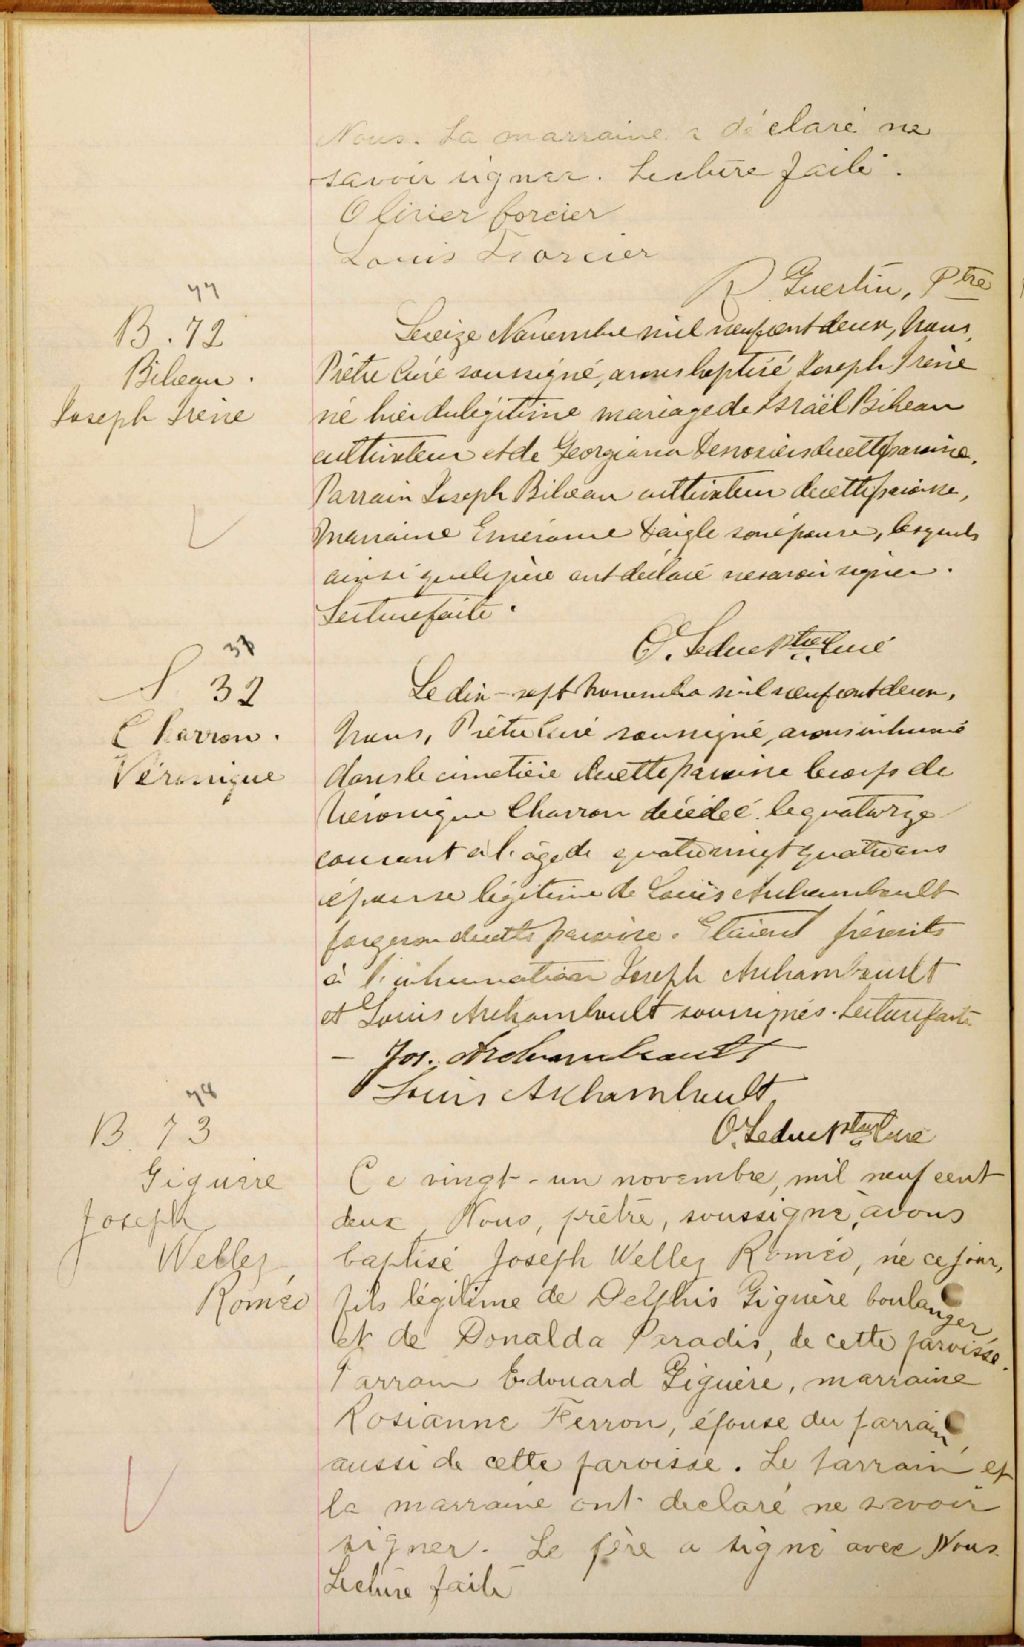 Nous. La marraine a déclaré ne
savoir signer. Lecture faite.
Olivier Forcier
Louis Forcier
R Guertin, Ptre
77
B. 72
Biheau.
Joseph Irène
Le seize Novembre mil neuf cent deux, Nous,
Prêtre Curé soussigné, avons baptisé Joseph Irène
né hier du légitime mariage de Israël Biheau
cultivateur et de Georgiana Desrosiers de cette paroisse.
Parrain Joseph Biheau cultivateur de cette paroisse,
Marraine Emérance Daigle son épouse, lesquels
ainsi que le père ont déclaré ne savoir signer.
Lecture faite.
O. Leduc Ptre Curé
S. 32
Charron.
Véronique
Le dix-sept Novembre mil neuf cent deux,
Nous, Prêtre Curé soussigné, avons inhumé
dans le cimetière de cette paroisse le corps de
Véronique Charron décédée le quatorze
courant à l'âge de quatre vingt quatre ans
épouse légitime de Louis Archambault
forgeron de cette paroisse. Etaient présents
à l'inhumation Joseph Archambault
et Louis Archambault soussignés. Lecture faite.
- Jos. Archambault
Louis Archambault
O. Leduc Ptre Curé
78
B. 73
Giguère
Joseph
Welley
Roméo
Ce vingt-un novembre, mil neuf cent
deux, Nous, prêtre, soussigné, avons
baptisé Joseph Welley Roméo, né ce jour,
fils légitime de Delphis Giguère boulanger,
et de Donalda Paradis, de cette paroisse.
Parrain Edouard Giguère, marraine
Rosianne Ferron, épouse du parrain,
aussi de cette paroisse. Le parrain et
la marraine ont declaré ne savoir
signer. Le père a signé avec Nous.
Lecture faite